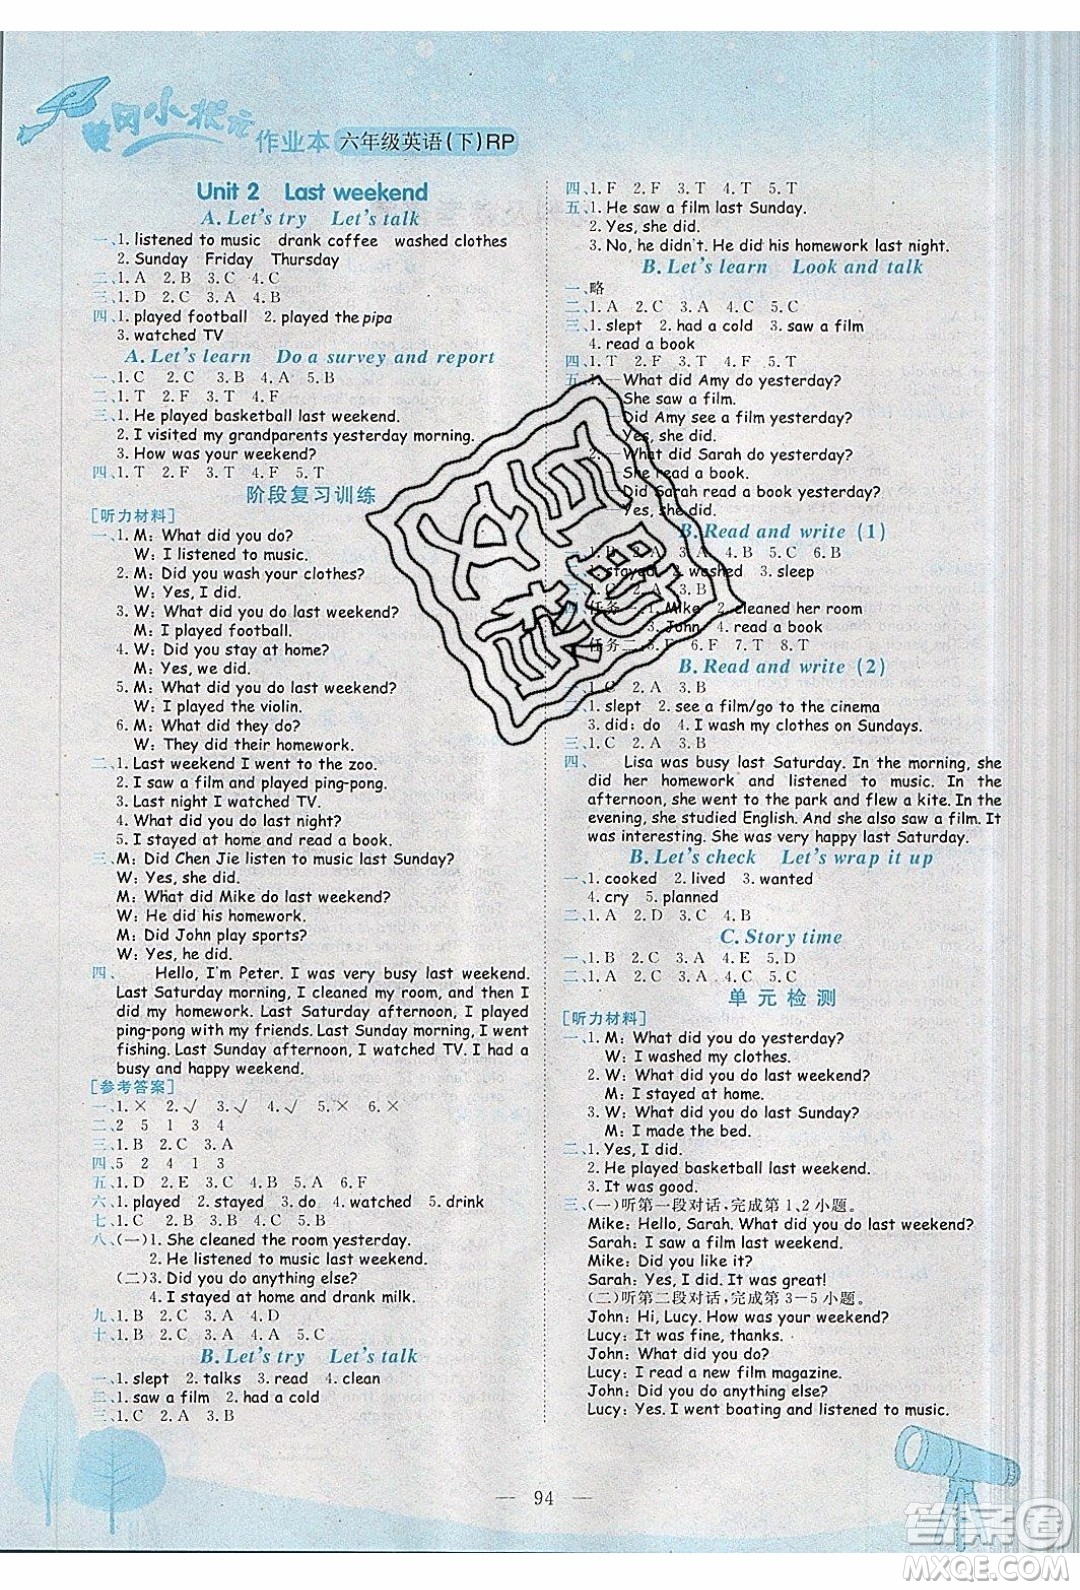 黄冈小状元
作业本 六年级英语(下)RP
Unit 2 Last weekend
A. Let's try Let's talk
一、1. listened to music drank coffee washed clothes
2. Sunday Friday Thursday
二、1. A 2. B 3. C 4. C
三、1. D 2. C 3. A 4. B
四、1. played football 2. played the pipa
3. watched TV
A. Let's learn Do a survey and report
一、1. C 2. C 3. B 4. A 5. B
二、1. T 2. F 3. F 4. T
三、1. He played basketball last weekend.
2. I visited my grandparents yesterday morning.
3. How was your weekend?
四、1. T 2. F 3. F 4. F 5. T
阶段复习训练
[听力材料]
一、1. M: What did you do?
W: I listened to music.
2. M: Did you wash your clothes?
W: Yes, I did.
3. W: What did you do last weekend?
M: I played football.
4. W: Did you stay at home?
M: Yes, we did.
5. M: What did you do last weekend?
W: I played the violin.
6. M: What did they do?
W: They did their homework.
二、1. Last weekend I went to the zoo.
2. I saw a film and played ping-pong.
3. Last night I watched TV.
4. What did you do last night?
5. I stayed at home and read a book.
三、M: Did Chen Jie listen to music last Saturday?
W: Yes, she did.
M: What did Mike do last weekend?
W: He did his homework.
M: Did John play sports?
W: Yes, he did.
四、 Hello, I'm Peter. I was very busy last weekend.
Last Saturday morning, I cleaned my room, and then I
did my homework. Last Saturday afternoon, I played
ping-pong with my friends. Last Sunday morning, I went
fishing. Last Sunday afternoon, I watched TV. I had a
busy and happy weekend.
[参考答案]
一、1. × 2. √ 3. √ 4. √ 5. × 6. ×
二、2 5 1 3 4
三、1. B 2. C 3. A
四、5 2 4 1 3
五、1. D 2. E 3. C 4. B 5. A
六、1. played 2. stayed 3. do 4. watched 5. drink
七、1. C 2. B 3. B 4. C 5. A
八、(一)1. She cleaned the room yesterday.
2. He listened to music last weekend.
(二)3. Did you do anything else?
4. I stayed at home and drank milk.
九、1. B 2. C 3. A 4. D
十、1. B 2. B 3. C 4. A 5. C
B. Let's try Let's talk
一、1. slept 2. talks 3. read 4. clean
二、1. saw a film 2. had a cold
三、1. A 2. C 3. B
四、1. F 2. F 3. T 4. T 5. T
五、1. He saw a film last Sunday.
2. Yes, she did.
3. No, he didn't. He did his homework last night.
B. Let's learn Look and talk
一、略
二、1. A 2. C 3. A 4. C 5. B
三、1. slept 2. had a cold 3. saw a film
4. read a book
四、1. T 2. F 3. F 4. T
五、1. —What did Amy do yesterday?
—She saw a film.
—Did Amy see a film yesterday?
—Yes, she did.
2. —What did Sarah do yesterday?
—She read a book.
—Did Sarah read a book yesterday?
—Yes, she did.
B. Read and write (1)
一、1. B 2. A 3. A 4. B 5. C 6. B
二、1. stayed 2. washed 3. sleep
三、1. C 2. B 3. A
四、任务一:1. Mike 2. cleaned her room
3. John 4. read a book
任务二:5. F 6. F 7. T 8. T
B. Read and write (2)
一、1. C 2. A 3. B
二、1. slept 2. see a film/go to the cinema
3. did; do 4. I wash my clothes on Sundays.
三、1. C 2. A 3. B
四、 Lisa was busy last Saturday. In the morning, she
did her homework and listened to music. In the
afternoon, she went to the park and flew a kite. In the
evening, she studied English. And she also saw a film. It
was interesting. She was very happy last Saturday.
B. Let's check Let's wrap it up
一、1. cooked 2. lived 3. wanted
4. cry 5. planned
二、1. A 2. D 3. C 4. B
C. Story time
一、1. B 2. C 3. A 4. E 5. D
二、1. A 2. C 3. B 4. C 5. C
单元检测
[听力材料]
一、1. M: What did you do yesterday?
W: I washed my clothes.
2. W: What did you do yesterday?
M: I stayed at home.
3. W: What did you do last Sunday?
M: I made the bed.
二、1. Yes, I did.
2. He played basketball last weekend.
3. It was good.
三、(一)听第一段对话,完成第1、2小题。
Mike: Hello, Sarah. What did you do last weekend?
Sarah: I saw a film last weekend.
Mike: Did you like it?
Sarah: Yes, I did. It was great!
(二)听第二段对话,完成第3-5小题。
John: Hi, Lucy. How was your weekend?
Lucy: It was fine, thanks.
John: What did you do?
Lucy: I read a new film magazine.
John: Did you do anything else?
Lucy: Yes. I went boating and listened to music.
— 94 —
答案圈
MXQE.COM